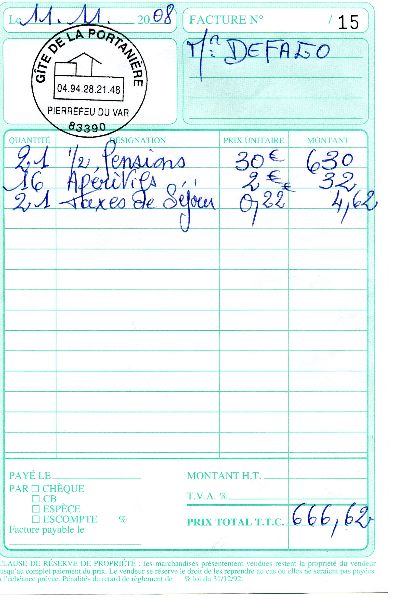 Le 11.11. 2008
FACTURE N° / 15
GÎTE DE LA PORTANIÈRE
04.94.28.21.48
PIERREFEU DU VAR
83390
Mr DEFAGO
QUANTITÉ DÉSIGNATION PRIX UNITAIRE MONTANT
21 1/2 Pensions 30€ 630
16 Apéritifs 2€ 32
21 Taxes de Séjour 0,22€ 4,62
PAYÉ LE
PAR □ CHÈQUE
□ CB
□ ESPÈCE
□ ESCOMPTE %
Facture payable le
MONTANT H.T.
T.V.A %
PRIX TOTAL T.T.C. 666,62
CLAUSE DE RÉSERVE DE PROPRIÉTÉ : les marchandises présentement vendues restent la propriété du vendeur
jusqu'au complet paiement du prix. Le vendeur se réserve le droit de les reprendre au cas où elles ne seraient pas payées
à l'échéance prévue. Pénalités du retard de règlement de % loi du 31/12/92.